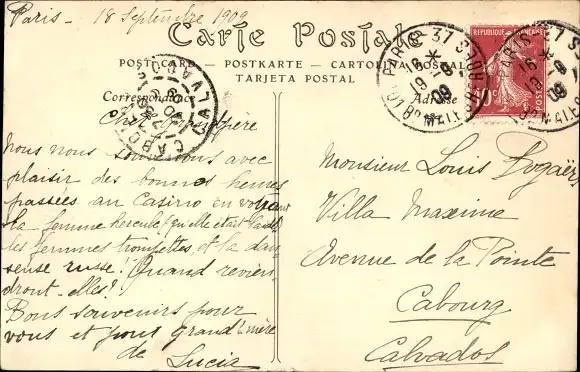 Paris - 18 Septembre 1909
Carte Postale
POSTCARD — POSTKARTE — CARTOLINA POSTALE
TARJETA POSTAL
Correspondance
Adresse
REPUBLIQUE FRANÇAISE
POSTES
10c
PARIS 37
CABOURG
CALVADOS
Cher
Nous nous souvenons avec
plaisir des bonnes heures
passées au Casino en voyant
la femme hercule (qu'elle était
les femmes trompettes et la dan-
seuse russe! Quand revien-
dront-elles?
Bons souvenirs pour
vous et pour grand'mère
de Lucia
Monsieur Louis
Villa Maxime
Avenue de la Pointe
Cabourg
Calvados